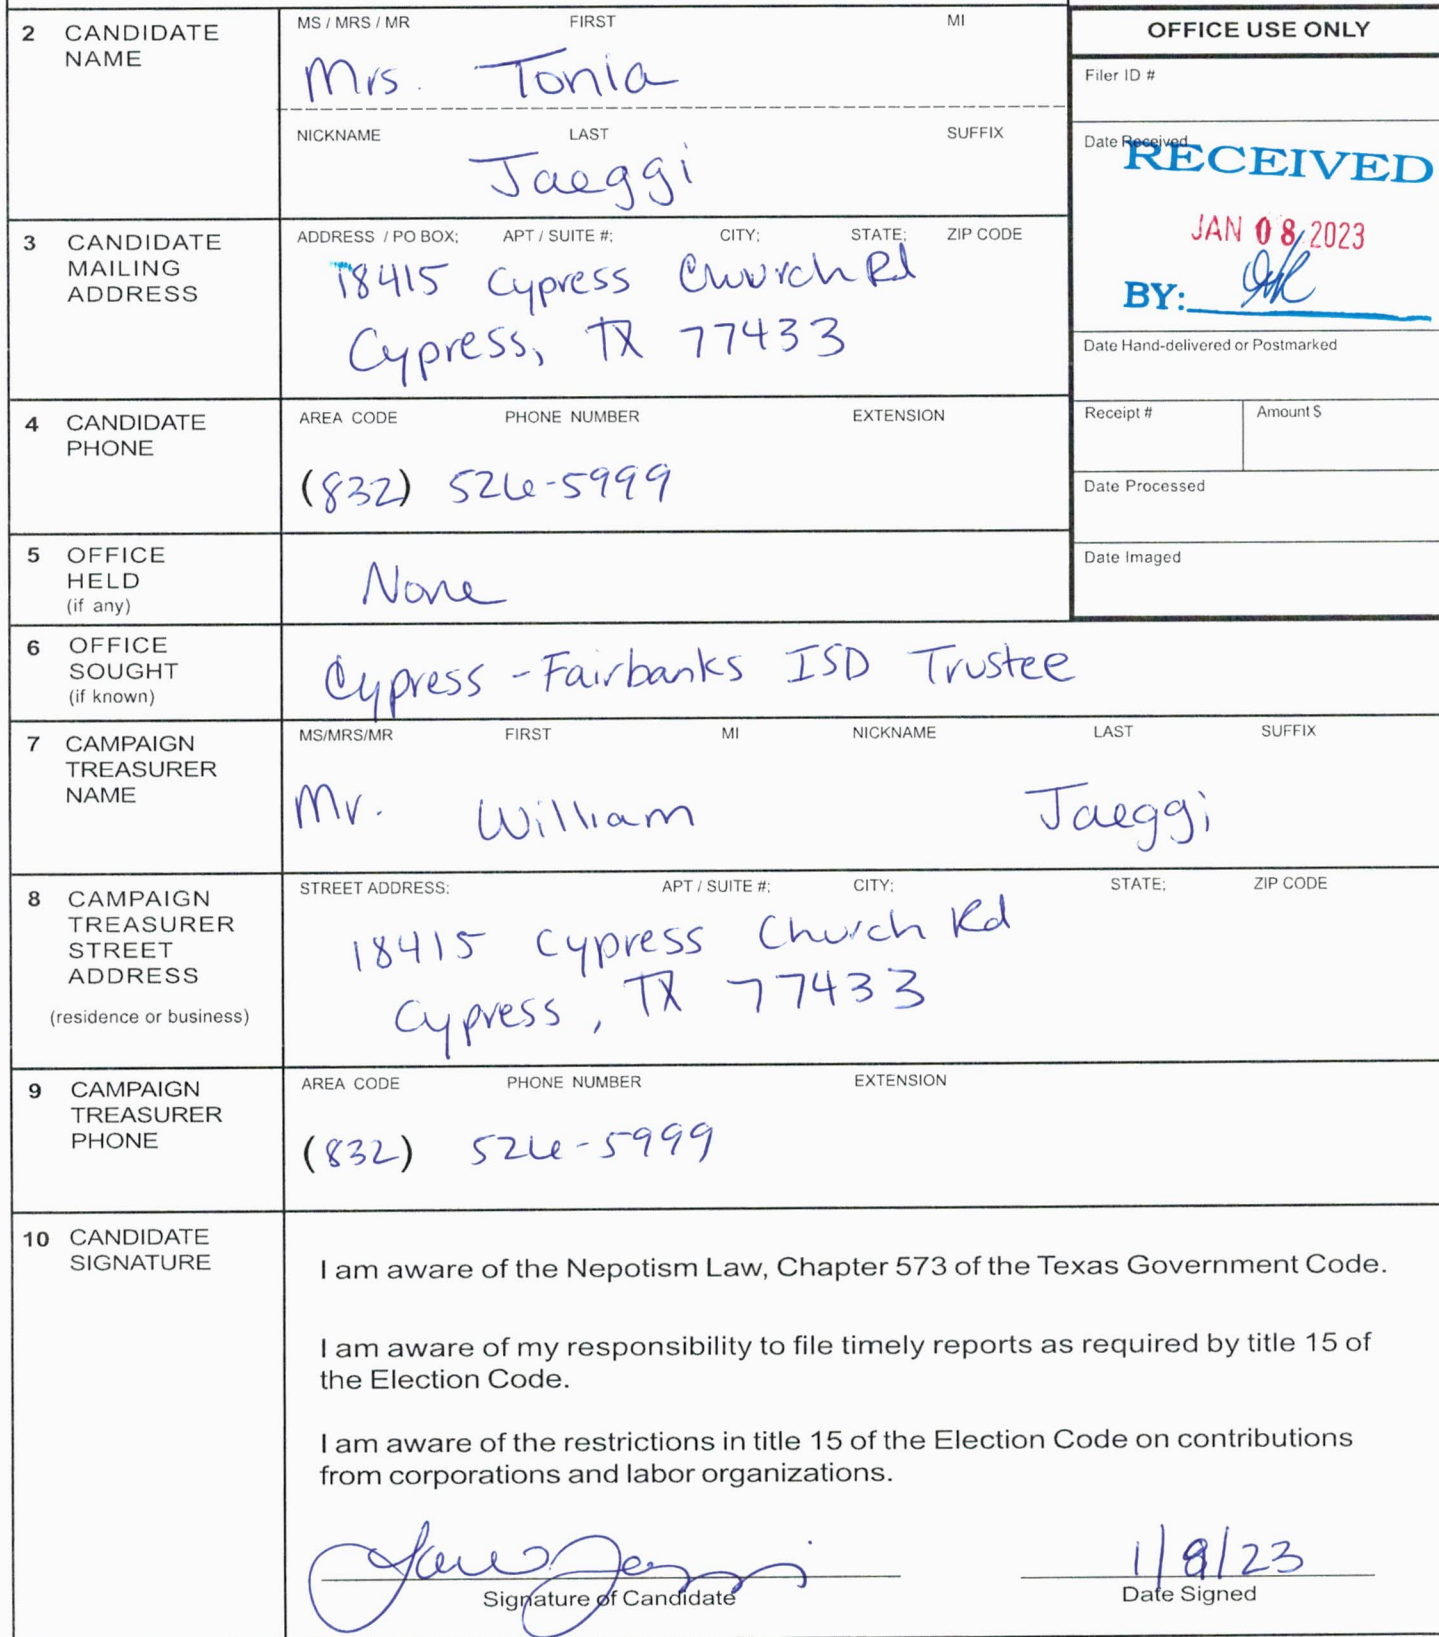 2 CANDIDATE NAME
MS / MRS / MR FIRST MI
Mrs. Tonia
NICKNAME LAST SUFFIX
Jaeggi
OFFICE USE ONLY
Filer ID #
Date Received
RECEIVED
JAN 08 2023
BY:
Date Hand-delivered or Postmarked
Receipt # Amount $
Date Processed
Date Imaged
3 CANDIDATE MAILING ADDRESS
ADDRESS / PO BOX; APT / SUITE #; CITY; STATE; ZIP CODE
18415 Cypress Church Rd
Cypress, TX 77433
4 CANDIDATE PHONE
AREA CODE PHONE NUMBER EXTENSION
(832) 526-5999
5 OFFICE HELD (if any)
None
6 OFFICE SOUGHT (if known)
Cypress-Fairbanks ISD Trustee
7 CAMPAIGN TREASURER NAME
MS/MRS/MR FIRST MI NICKNAME LAST SUFFIX
Mr. William Jaeggi
8 CAMPAIGN TREASURER STREET ADDRESS (residence or business)
STREET ADDRESS; APT / SUITE #; CITY; STATE; ZIP CODE
18415 Cypress Church Rd
Cypress, TX 77433
9 CAMPAIGN TREASURER PHONE
AREA CODE PHONE NUMBER EXTENSION
(832) 526-5999
10 CANDIDATE SIGNATURE
I am aware of the Nepotism Law, Chapter 573 of the Texas Government Code.
I am aware of my responsibility to file timely reports as required by title 15 of
the Election Code.
I am aware of the restrictions in title 15 of the Election Code on contributions
from corporations and labor organizations.
1/8/23
Signature of Candidate Date Signed